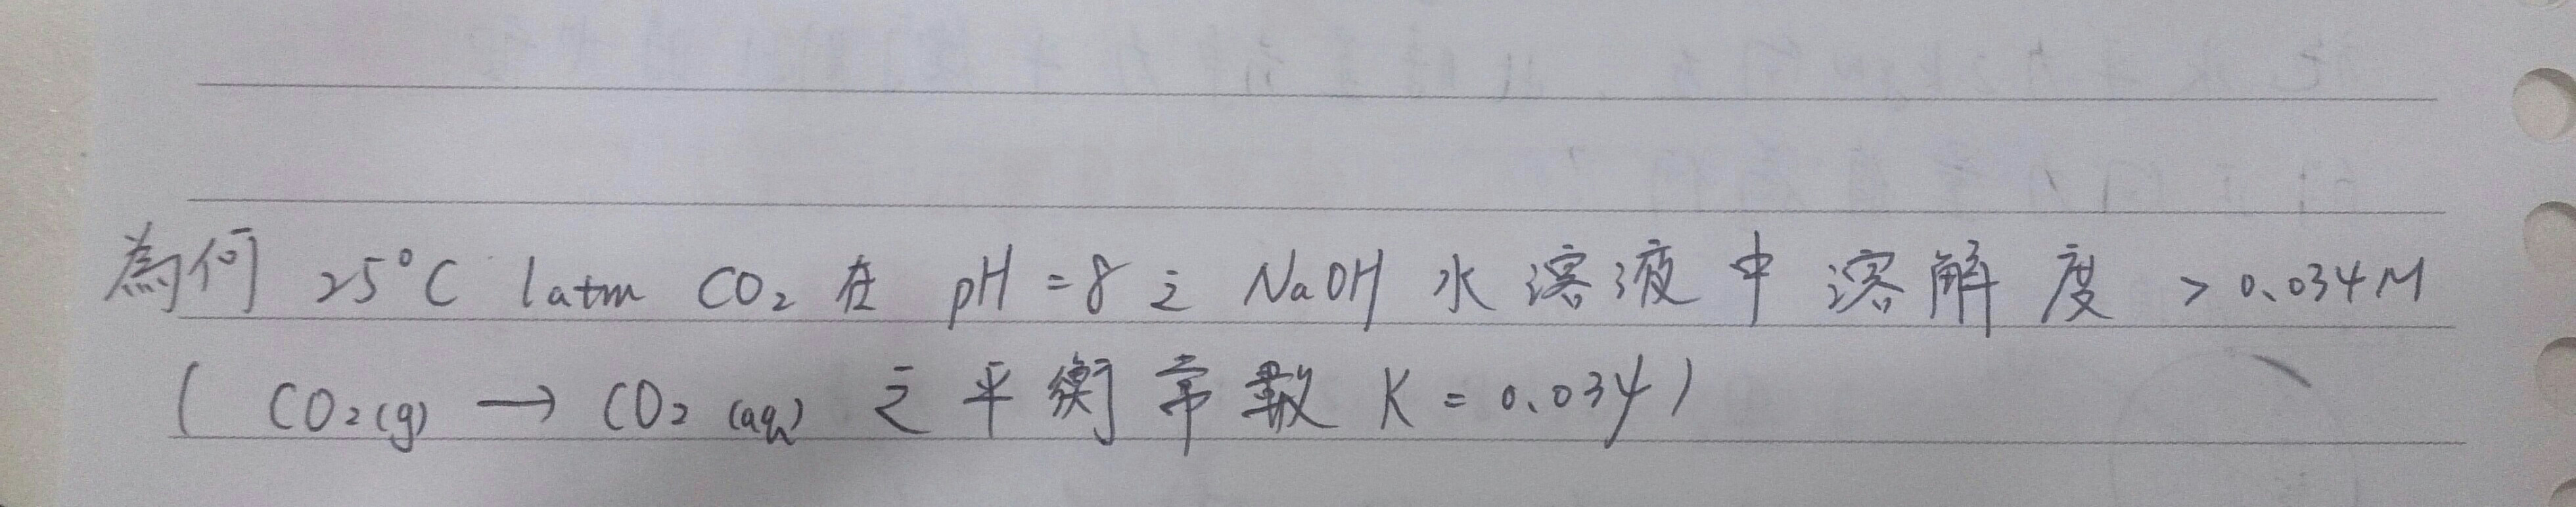 為何 25°C 1atm CO₂ 在 pH = 8 之 NaOH 水溶液中溶解度 > 0.034M
( CO₂(g) → CO₂(aq) 之平衡常數 K = 0.034 )